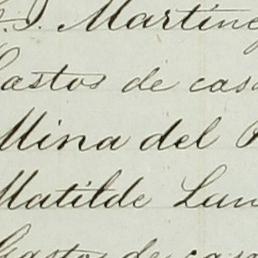 J. Martínez
Gastos de casa
Mina del
Matilde
Gastos de casa